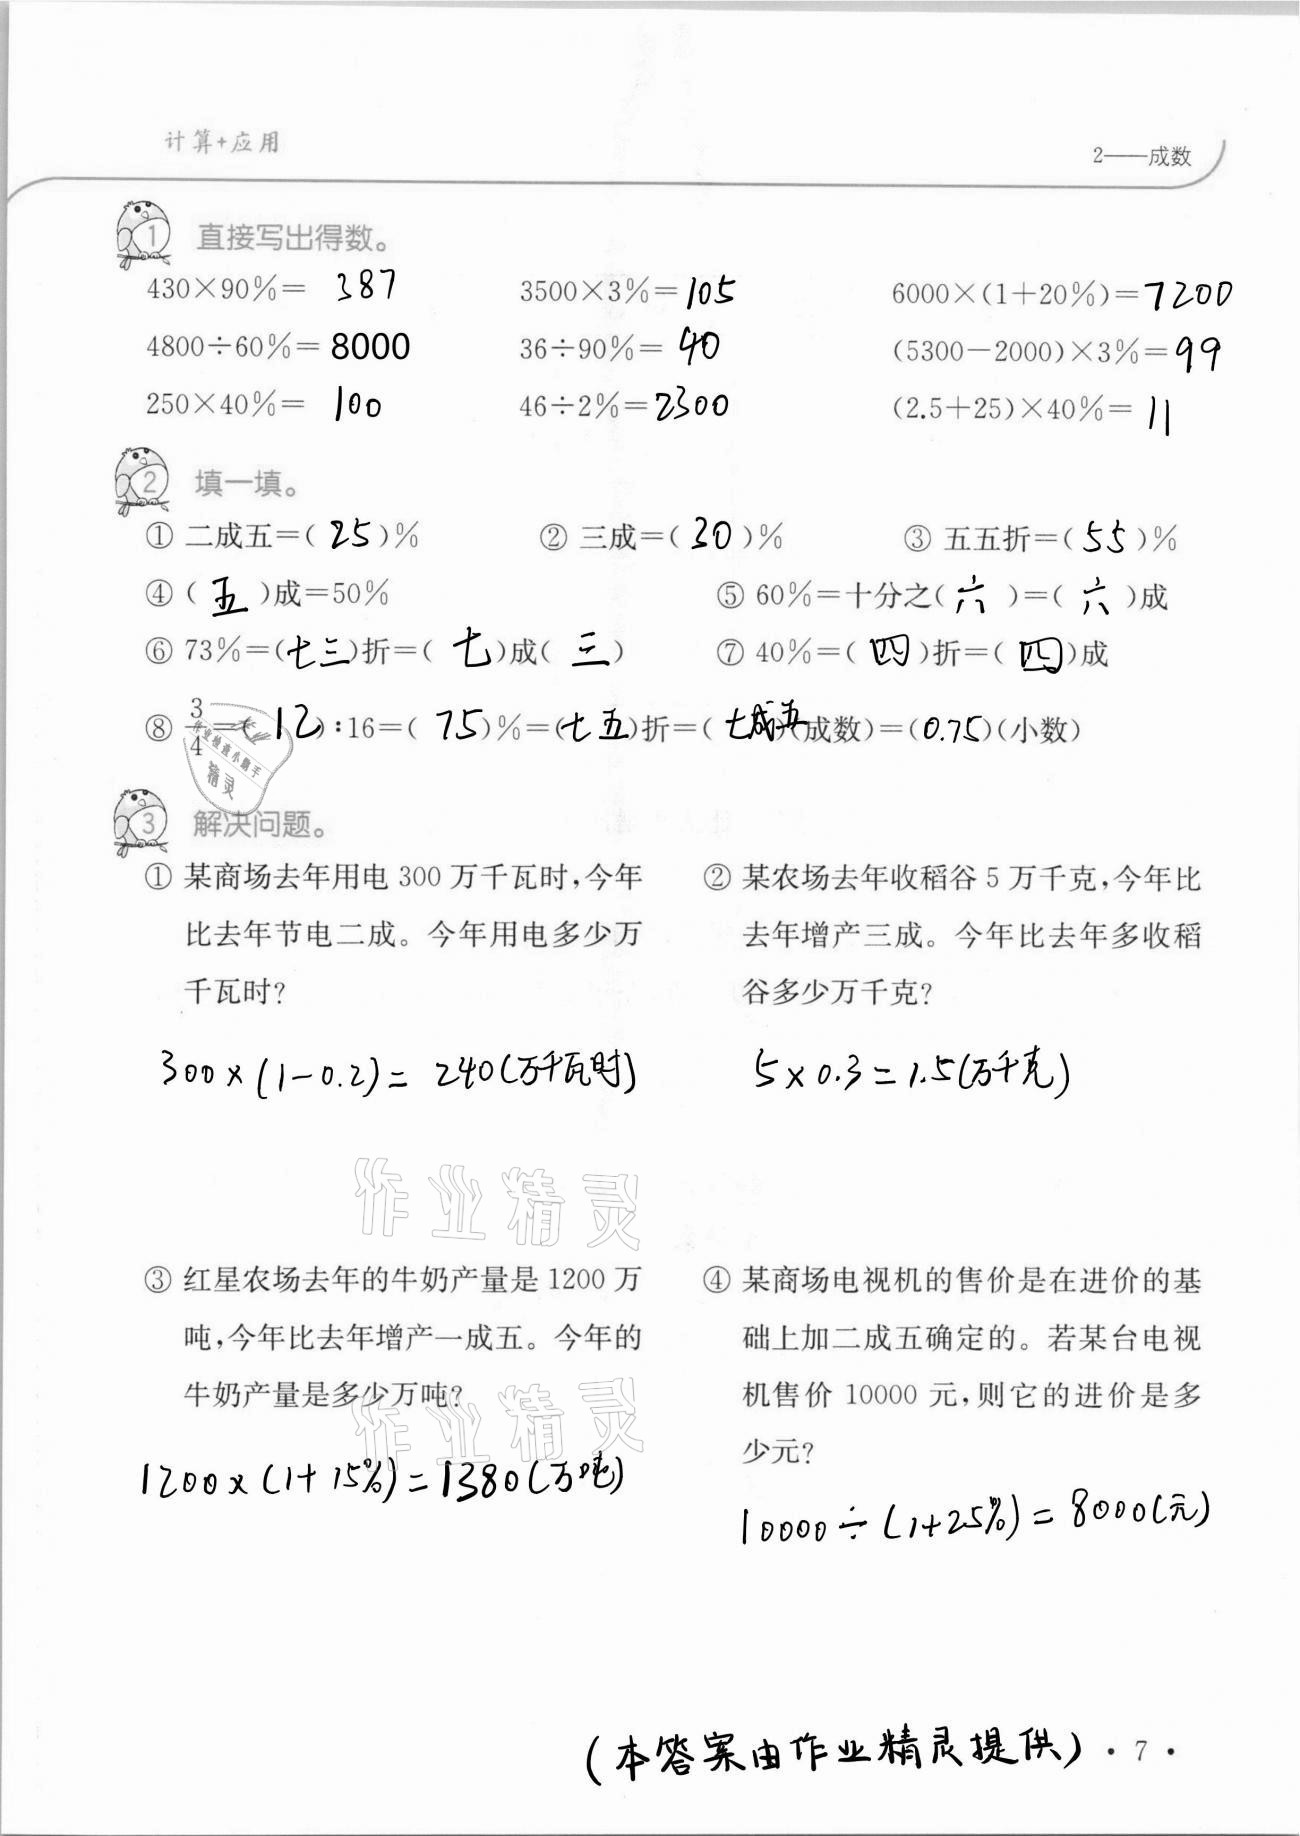 计算+应用
2——成数
1 直接写出得数。
430×90%= 387 3500×3%=105 6000×(1+20%)=7200
4800÷60%= 8000 36÷90%= 40 (5300−2000)×3%=99
250×40%= 100 46÷2%=2300 (2.5+25)×40%= 11
2 填一填。
① 二成五=( 25 )% ② 三成=( 30 )% ③ 五五折=( 55 )%
④ ( 五 )成=50% ⑤ 60%=十分之( 六 )=( 六 )成
⑥ 73%=(七三)折=( 七 )成( 三 ) ⑦ 40%=( 四 )折=( 四 )成
⑧ 3/4=( 12 ):16=( 75 )%=(七五)折=( 七成五 )(成数)=(0.75)(小数)
作业检查小助手
精灵
3 解决问题。
① 某商场去年用电 300 万千瓦时,今年
比去年节电二成。今年用电多少万
千瓦时?
300×(1−0.2)= 240(万千瓦时)
② 某农场去年收稻谷 5 万千克,今年比
去年增产三成。今年比去年多收稻
谷多少万千克?
5×0.3=1.5(万千克)
作业精灵
③ 红星农场去年的牛奶产量是 1200 万
吨,今年比去年增产一成五。今年的
牛奶产量是多少万吨?
作业精灵
1200×(1+15%)=1380(万吨)
④ 某商场电视机的售价是在进价的基
础上加二成五确定的。若某台电视
机售价 10000 元,则它的进价是多
少元?
10000÷(1+25%)=8000(元)
(本答案由作业精灵提供)
· 7 ·